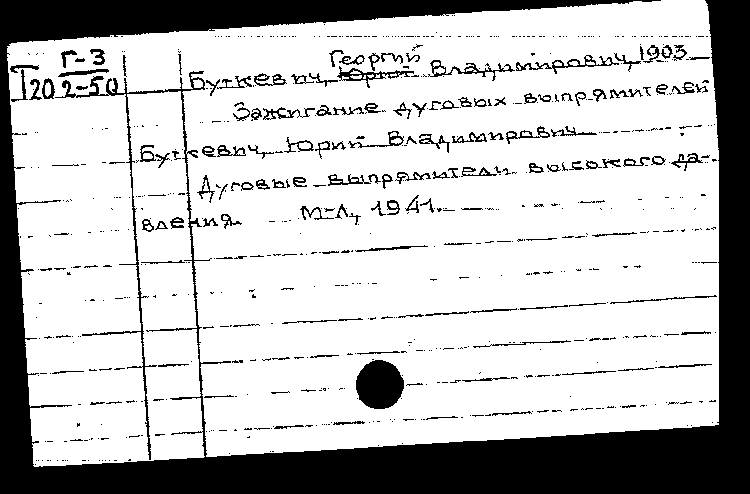 Г-3
Т20 2-50
Георгий
Буткевич, Юрий Владимирович, 1903
Зажигание дуговых выпрямителей
Буткевич, Юрий Владимирович
Дуговые выпрямители высокого да-
вления. М-Л., 1941.